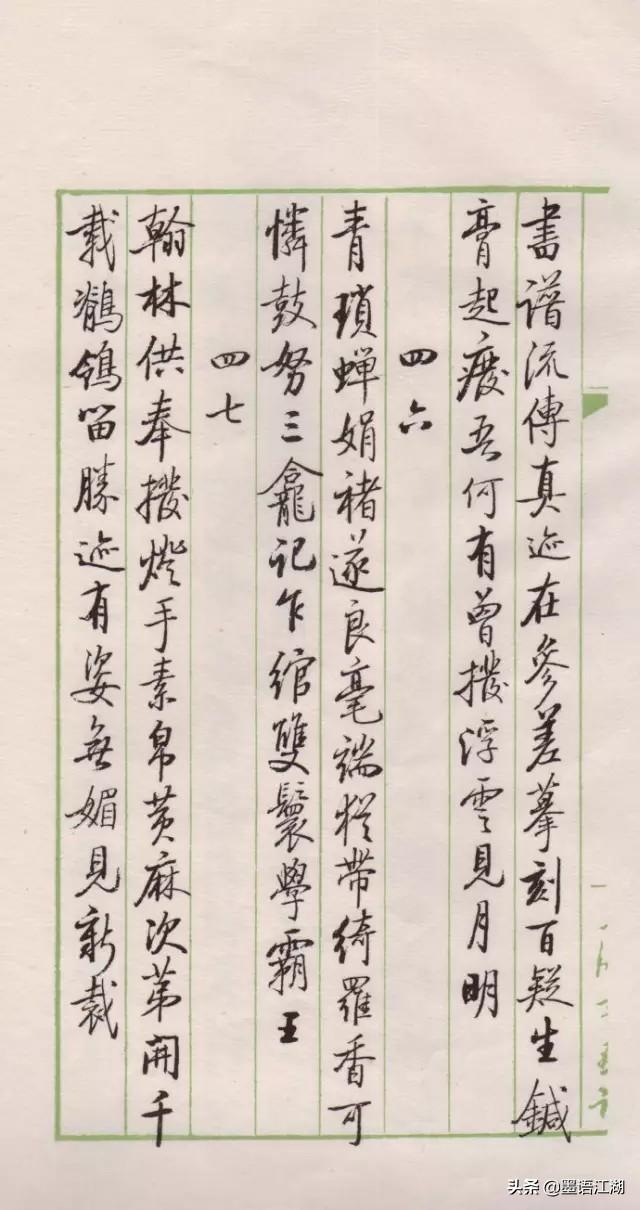 書譜流傳真迹在參差摹刻百疑生鍼
膏起廢吾何有曾撥浮雲見月明
四六
青瑣蟬娟褚遂良毫端猶帶綺羅香可
憐鼓努三龕記乍綰雙鬟學霸王
四七
翰林供奉撥燈手素帛黃麻次第開千
載鶺鴒留勝迹有姿無媚見新裁
头条 @墨语江湖